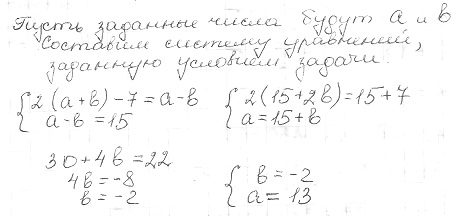 Пусть заданные числа будут a и b
Составим систему уравнений,
заданную условием задачи.
{2(a+b)-7=a-b {2(15+2b)=15+7
{a-b=15 {a=15+b
30+4b=22
4b=-8 {b=-2
b=-2 {a=13